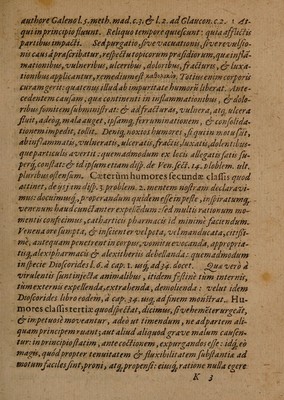 authore Galeno l. 5. meth. mad. c. 3. & l. 2. ad Glaucon. c. 2.
qui in principio fiunt. Reliquo tempore quiescunt: quia afflictis
partibus impacti. Sed purgatio, sive vacuationis, sive revulsio-
nis causâ præscribatur, respectu topicorum præsidiorum, quæ inflã-
mationibus, vulneribus, ulceribus, doloribus, fracturis, & luxa-
tionibus applicantur, remedium est Totius enim corporis
curam gerit: quatenus illud ab impuritate humorũ liberat. Ante-
cedentem causam, quæ continenti in inflammationibus, & dolo-
ribus fomitem subministrat: & ad fracturas, vulnera, atq; ulcera
fluit, adeòq; mala auget, ipsamq; ferruminationem, & consolida-
tionem impedit, tollit. Deniq; noxios humores, si qui in motu sĩt,
ab inflammatis, vulneratis, ulceratis, fractis, luxatis, dolentibus-
que particulis avertit: quemadmodum ex locis allegatis satis su-
perq; constat: & id ipsum etiam disp. de Ven. sect. 24. problem. ult.
pluribus ostensum. Cæterùm humores secundæ classis quod
attinet, de ijs in disp. 3. problem. 2. mentem nostram declaravi-
mus: docuimusq;, properandum quidem esse in peste, inspiratumq;
venenum haud cunctanter expellendum: sed multis rationum mo-
mentis censecimus, cathartica pharmacia id minimè faciendum.
Venena ore sumpta, & insicienter velpota, vel manducata, citissi-
mè, antequam penetrent in corpus, vomitu evocanda, appropria-
tisq; alexipharmacis & alexiteriis debellanda: quemadmodum
inspecie Dioscorides l. 6. à cap. 1. usq; ad 34. docet. Quæ verò à
virulentis sunt injecta animalibus, itidem festinè tùm internis,
tùm externis expellenda, extrahenda, demolienda: velut idem
Dioscorides libro eodem, à cap. 34. usq; ad finem monstrat. Hu-
mores classis tertiæ quod spectat, dicimus, si vehementer urgeãt,
& impetuosè moveantur, adeò ut timendum, ne ad partem ali-
quam principem ruant; aut aliud quoquid grave malum causen-
tur: in principio statim, ante coctionem, expurgandos esse: idq; eò
magis, quòd propter tenuitatem & fluxibilitatem substantiæ ad
motum faciles sint, proni, atq; propensi: eiusq; ratione nulla egere
K 3